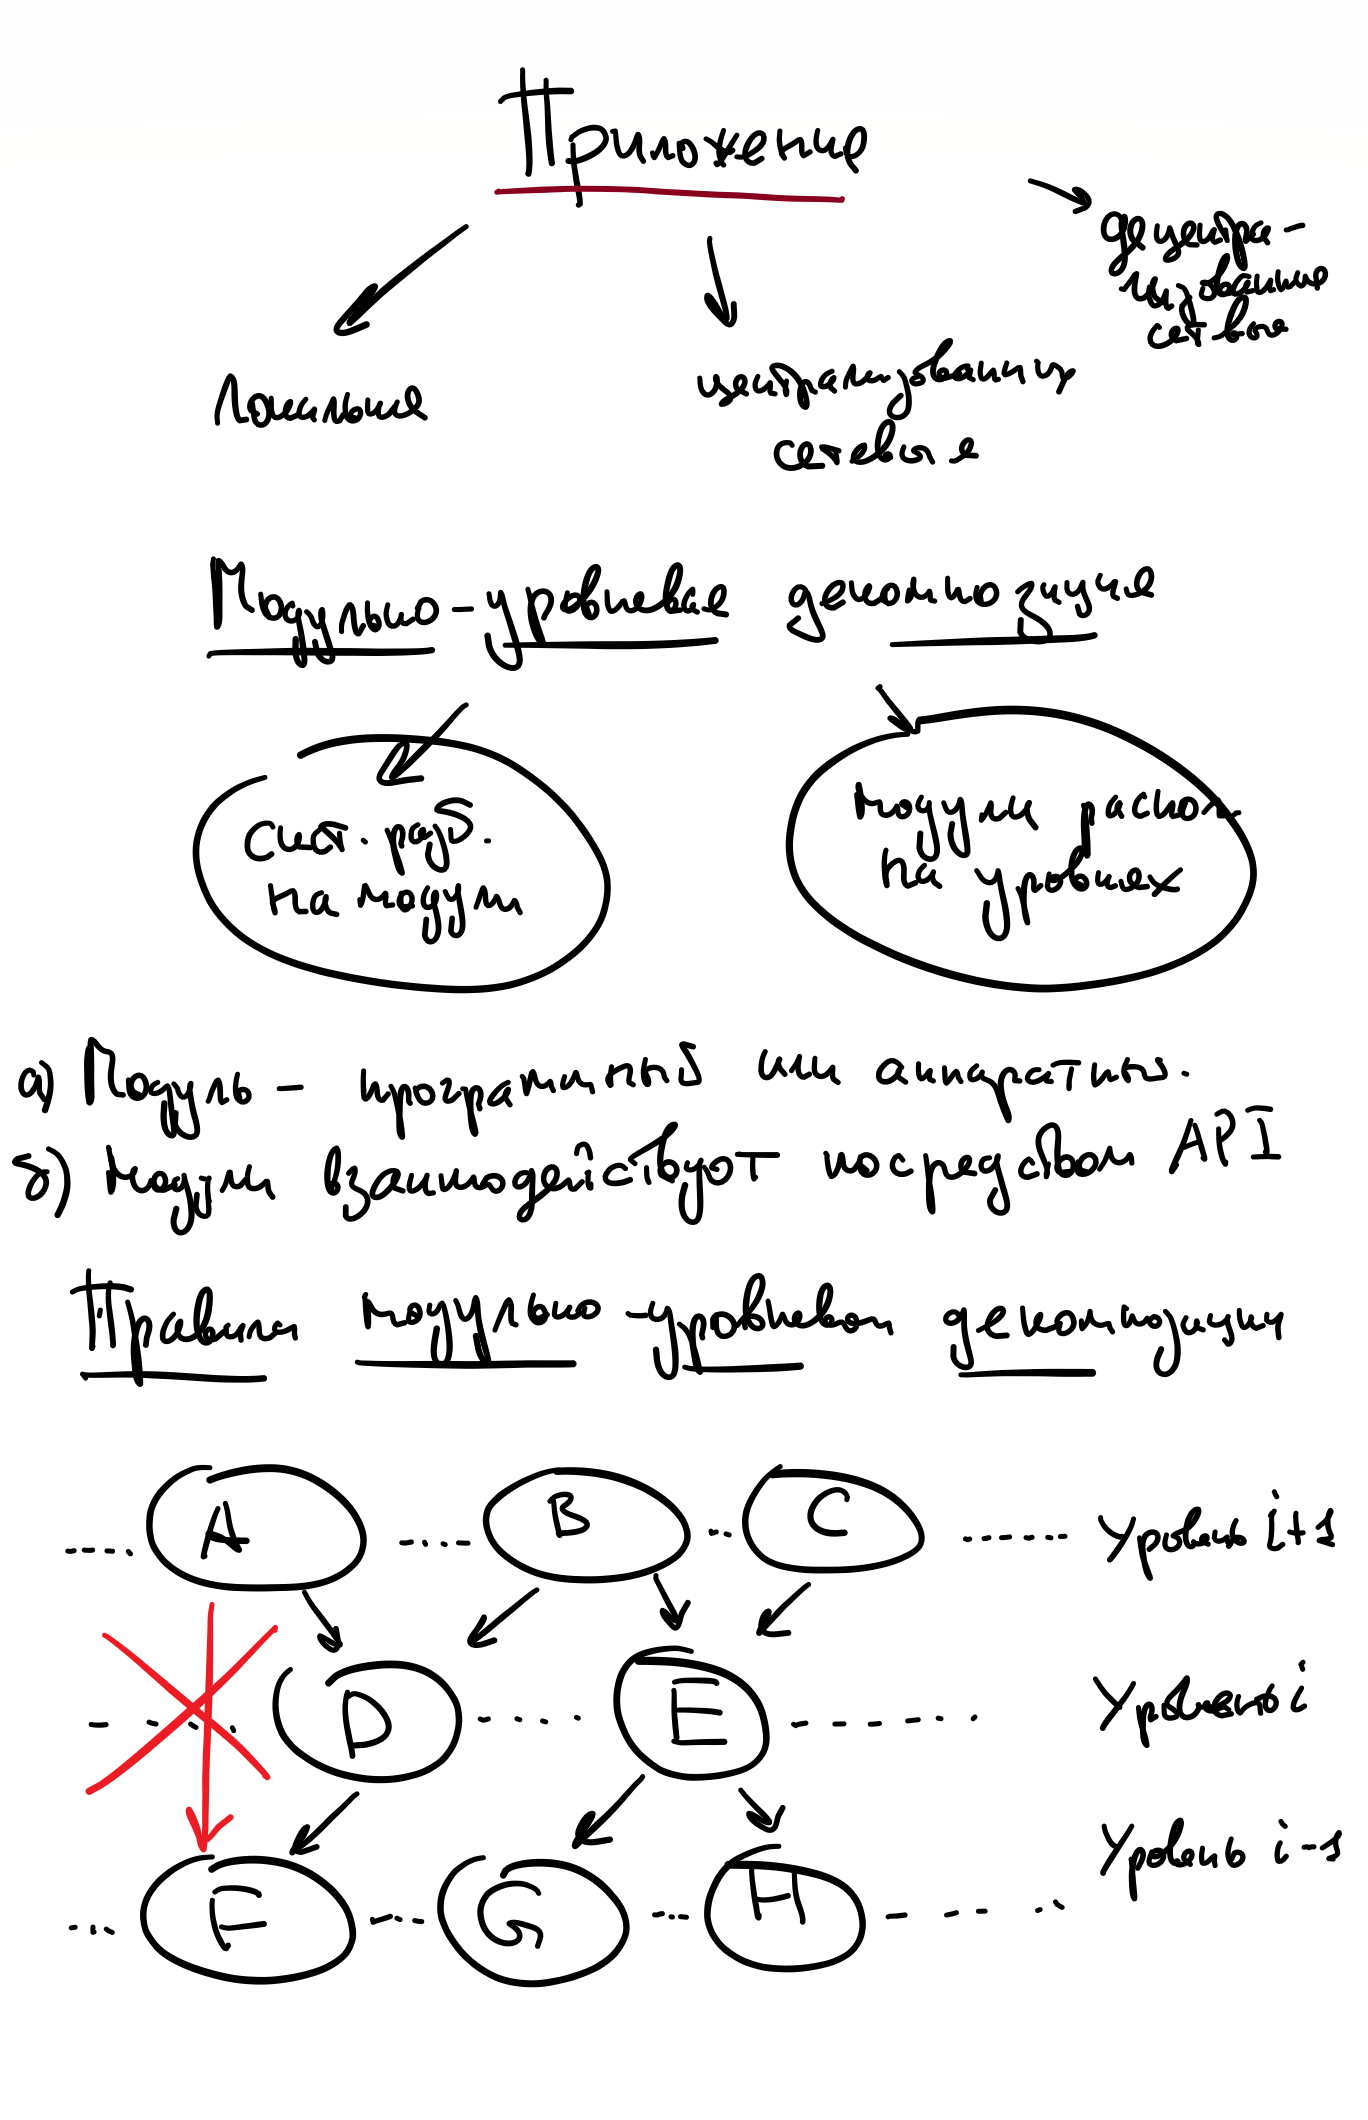 Приложение
децентра-
лизованные
сетевые
Локальные
централизованных
сетевые
Модульно-уровневая декомпозиция
Сист. разб.
на модули
модули распол.
на уровнях
а) Модуль - програмный или аппаратный.
б) Модули взаимодействуют посредством API
Правила модульно-уровневой декомпозиции
A B C Уровень i+1
D E Уровень i
F G H Уровень i-1